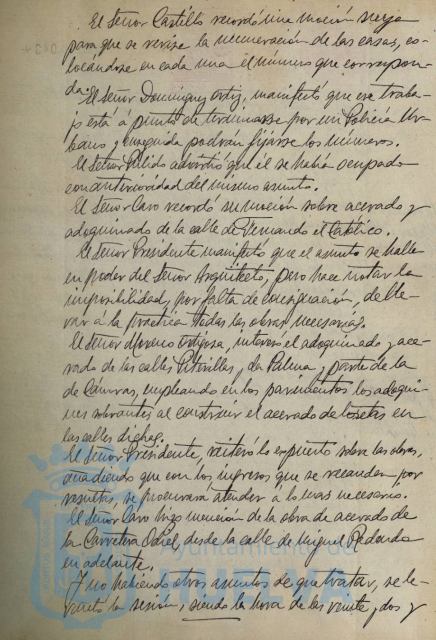 El Señor Castillo recordó una moción suya
para que se revise la numeración de las casas, co-
locándose en cada una el número que correspon-
da.
El Señor Dominguez Ortiz, manifestó que ese traba-
jo está á punto de terminarse por un Policia Ur-
bano, y enseguida podrán fijarse los números.
El Señor Pulido advirtió que él se había ocupado
con anterioridad del mismo asunto.
El Señor Caro recordó su moción sobre acerado y
adoquinado de la calle de Fernando el Católico.
El Señor Presidente manifestó que el asunto se halla
en poder del Señor Arquitecto, pero hace notar la
imposibilidad, por falta de consignación, de lle-
var á la práctica todas las obras necesarias.
El Señor Moreno Ortega, interesó el adoquinado y ace-
rado de las calles La Palma, y parte de la
de Cánovas, empleando en los pavimentos los adoqui-
nes sobrantes al construir el acerado de losetas en
las calles dichas.
El Señor Presidente, reiteró lo expuesto sobre las obras,
añadiendo que con los ingresos que se recauden por
resultas, se procurará atender a lo mas necesario.
El Señor Caro hizo mención de la obra de acerado de
la Carretera Odiel, desde la calle de Miguel Redondo
en adelante.
Y no habiendo otros asuntos de que tratar, se le-
vantó la sesión, siendo la hora de las veinte y dos y
Ayuntamiento de
HUELVA